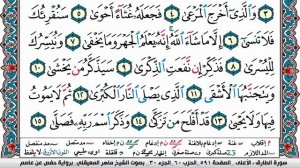 ٣ وَالَّذِي أَخْرَجَ الْمَرْعَىٰ ٤ فَجَعَلَهُ غُثَاءً أَحْوَىٰ ٥ سَنُقْرِئُكَ
فَلَا تَنسَىٰ ٦ إِلَّا مَا شَاءَ اللَّهُ إِنَّهُ يَعْلَمُ الْجَهْرَ وَمَا يَخْفَىٰ ٧ وَنُيَسِّرُكَ
لِلْيُسْرَىٰ ٨ فَذَكِّرْ إِن نَّفَعَتِ الذِّكْرَىٰ ٩ سَيَذَّكَّرُ مَن يَخْشَىٰ ١٠
وَيَتَجَنَّبُهَا الْأَشْقَى ١١ الَّذِي يَصْلَى النَّارَ الْكُبْرَىٰ ١٢ ثُمَّ لَا يَمُوتُ
فِيهَا وَلَا يَحْيَىٰ ١٣ قَدْ أَفْلَحَ مَن تَزَكَّىٰ ١٤ وَذَكَرَ اسْمَ رَبِّهِ فَصَلَّىٰ ١٥
سورة الطارق، الأعلى الصفحة ٥٩١ الحزب ٦٠ الجزء ٣٠ بصوت الشيخ ماهر المعيقلي برواية حفص عن عاصم